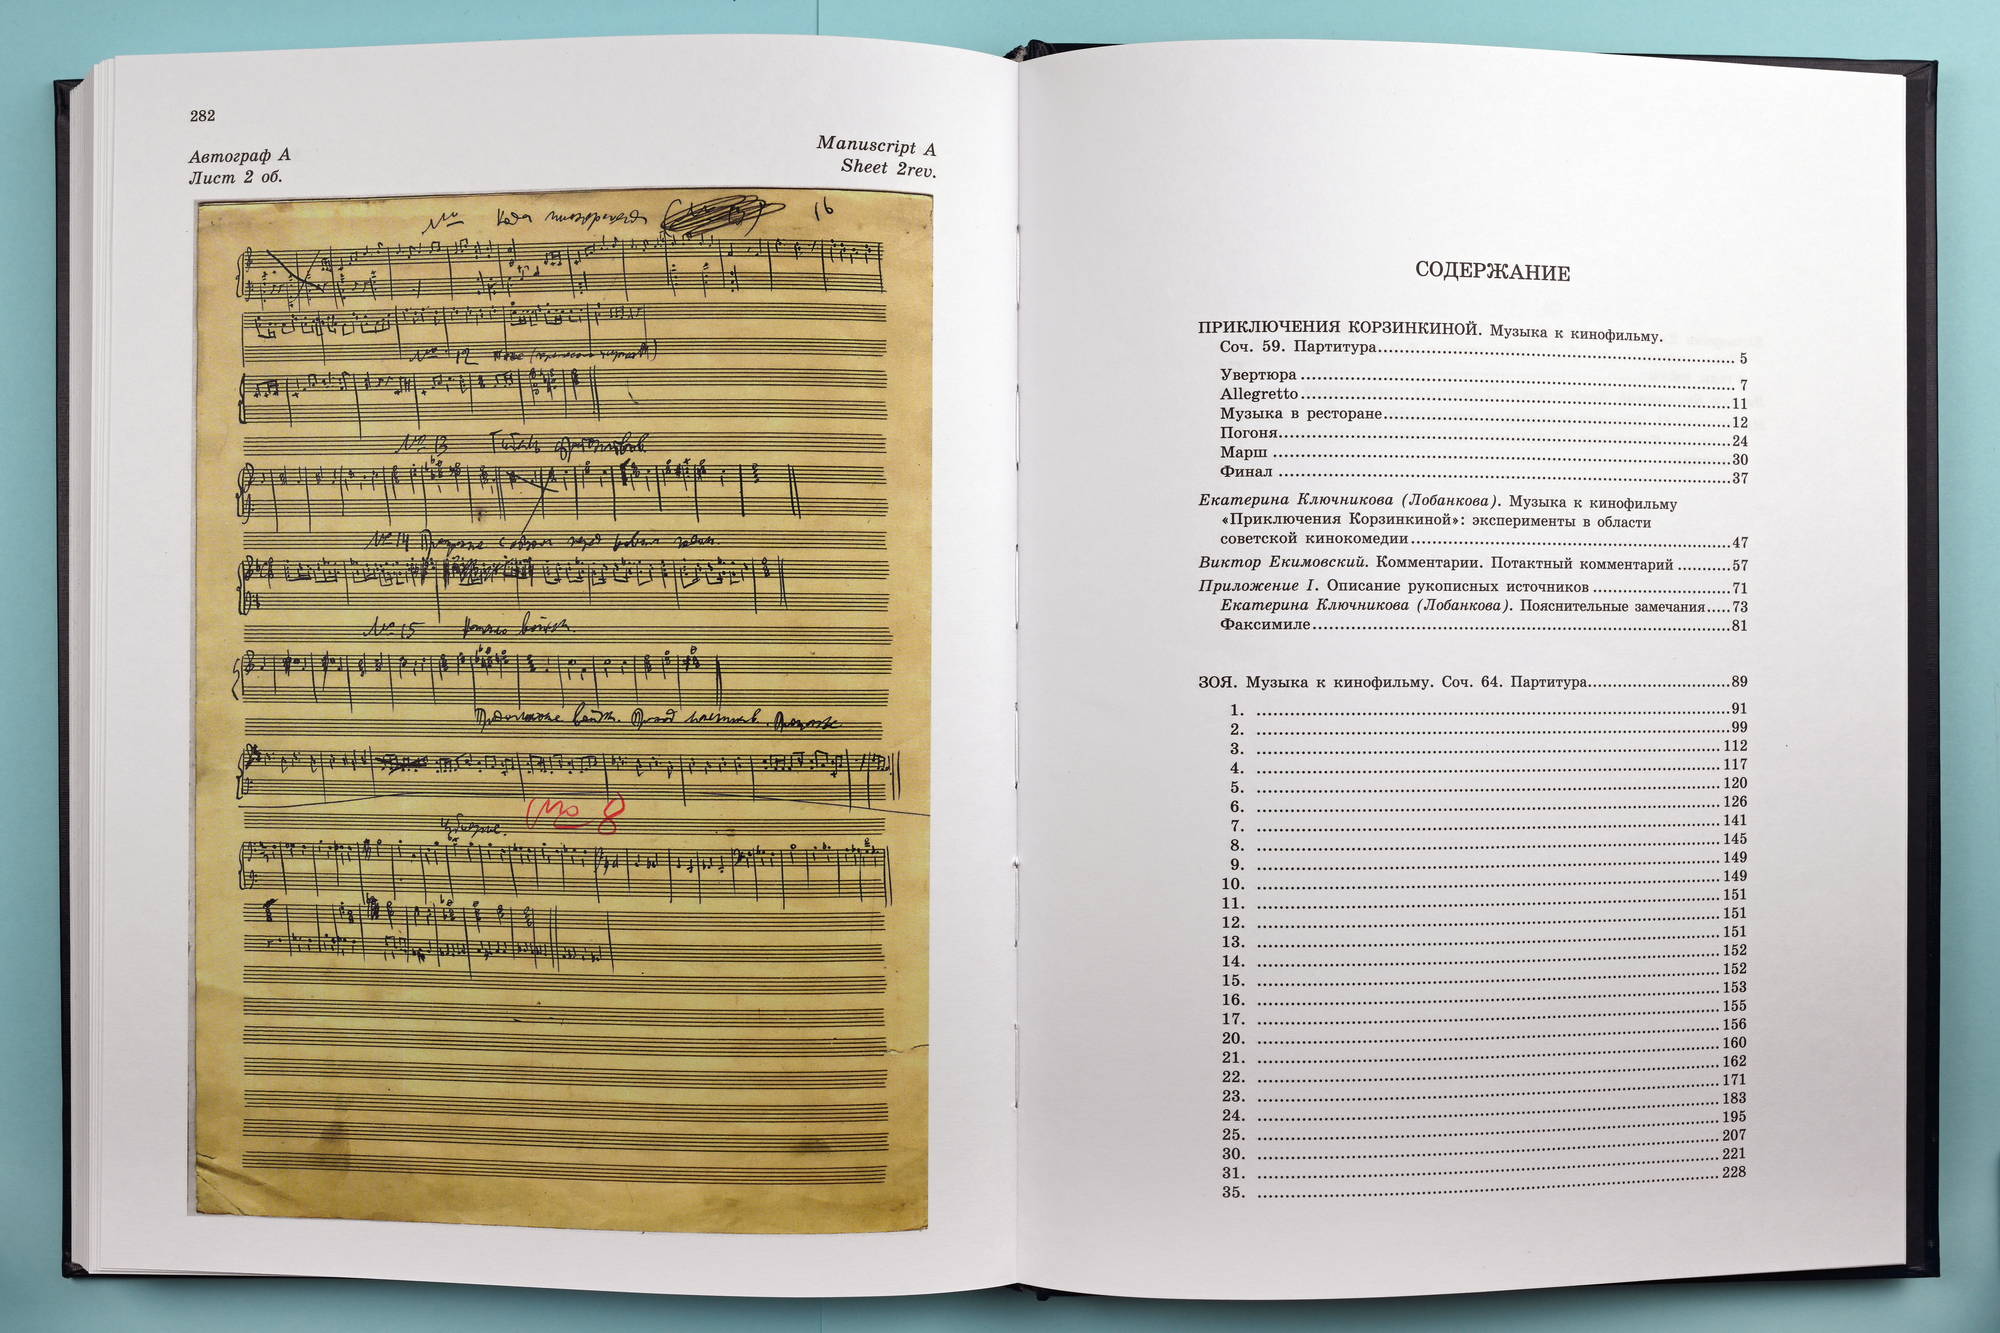 282
Автограф А
Лист 2 об.
Manuscript A
Sheet 2rev.
16
№ 12
№ 13
№ 14
№ 15
№ 8
СОДЕРЖАНИЕ
ПРИКЛЮЧЕНИЯ КОРЗИНКИНОЙ. Музыка к кинофильму.
Соч. 59. Партитура 5
Увертюра 7
Allegretto 11
Музыка в ресторане 12
Погоня 24
Марш 30
Финал 37
Екатерина Ключникова (Лобанкова). Музыка к кинофильму
«Приключения Корзинкиной»: эксперименты в области
советской кинокомедии 47
Виктор Екимовский. Комментарии. Потактный комментарий 57
Приложение I. Описание рукописных источников 71
Екатерина Ключникова (Лобанкова). Пояснительные замечания 73
Факсимиле 81
ЗОЯ. Музыка к кинофильму. Соч. 64. Партитура 89
1. 91
2. 99
3. 112
4. 117
5. 120
6. 126
7. 141
8. 145
9. 149
10. 149
11. 151
12. 151
13. 151
14. 152
15. 152
16. 153
17. 155
20. 156
21. 160
22. 162
23. 171
24. 183
25. 195
30. 207
31. 221
35. 228